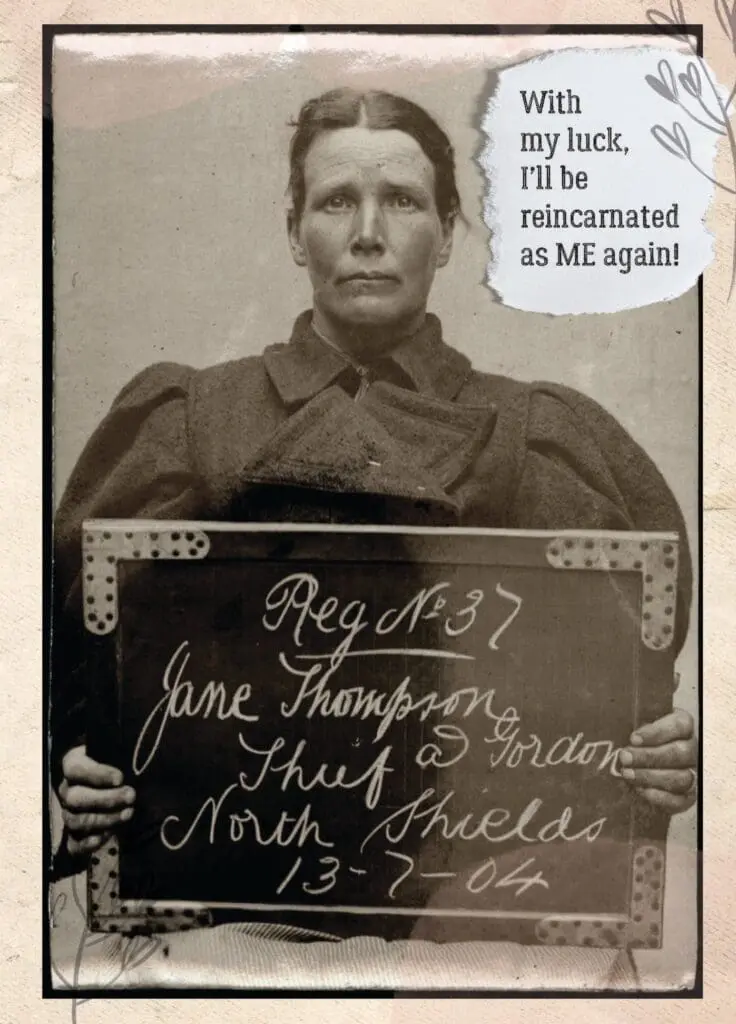 With
my luck,
I'll be
reincarnated
as ME again!
Reg Nº 37
Jane Thompson
Thief @ Gordon
North Shields
13-7-04